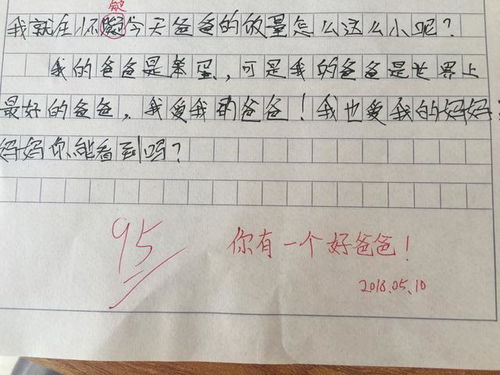 疑
我就在怀疑今天爸爸的饭量怎么这么小呢？
我的爸爸是笨蛋，可是我的爸爸是世界上
最好的爸爸，我爱我的爸爸！我也爱我的妈妈，
妈妈你能看到吗？
95
你有一个好爸爸！
2018.05.10